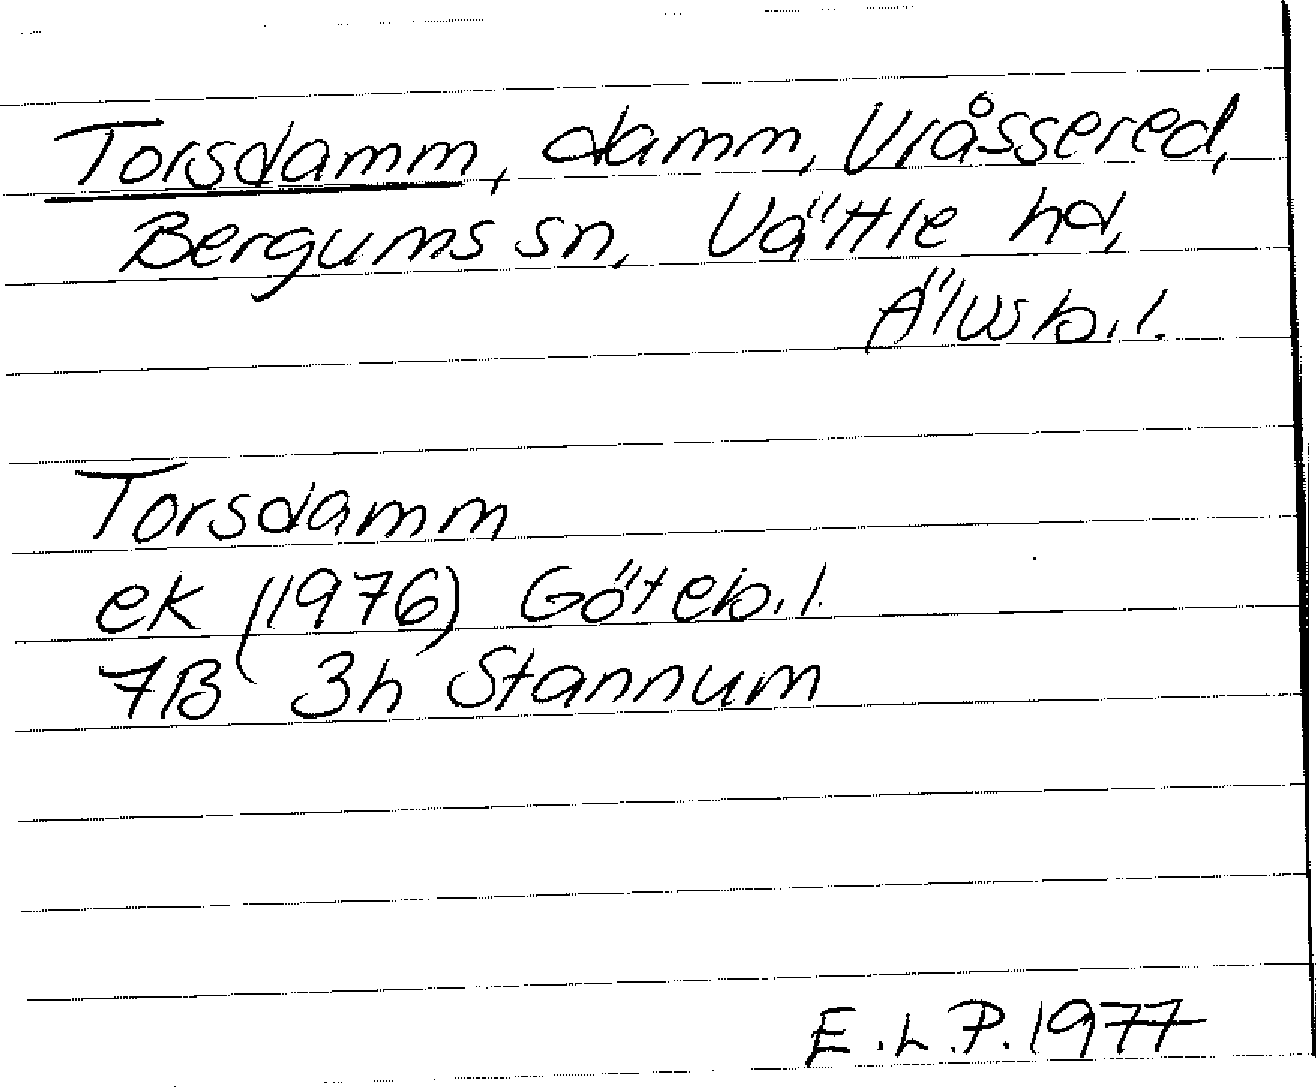 Torsdamm, damm, Vråssered,
Bergums sn, Vättle hd,
Älvsb. l.
Torsdamm
ek (1976) Göteb. l.
7B 3h Stannum
E.L.P. 1977